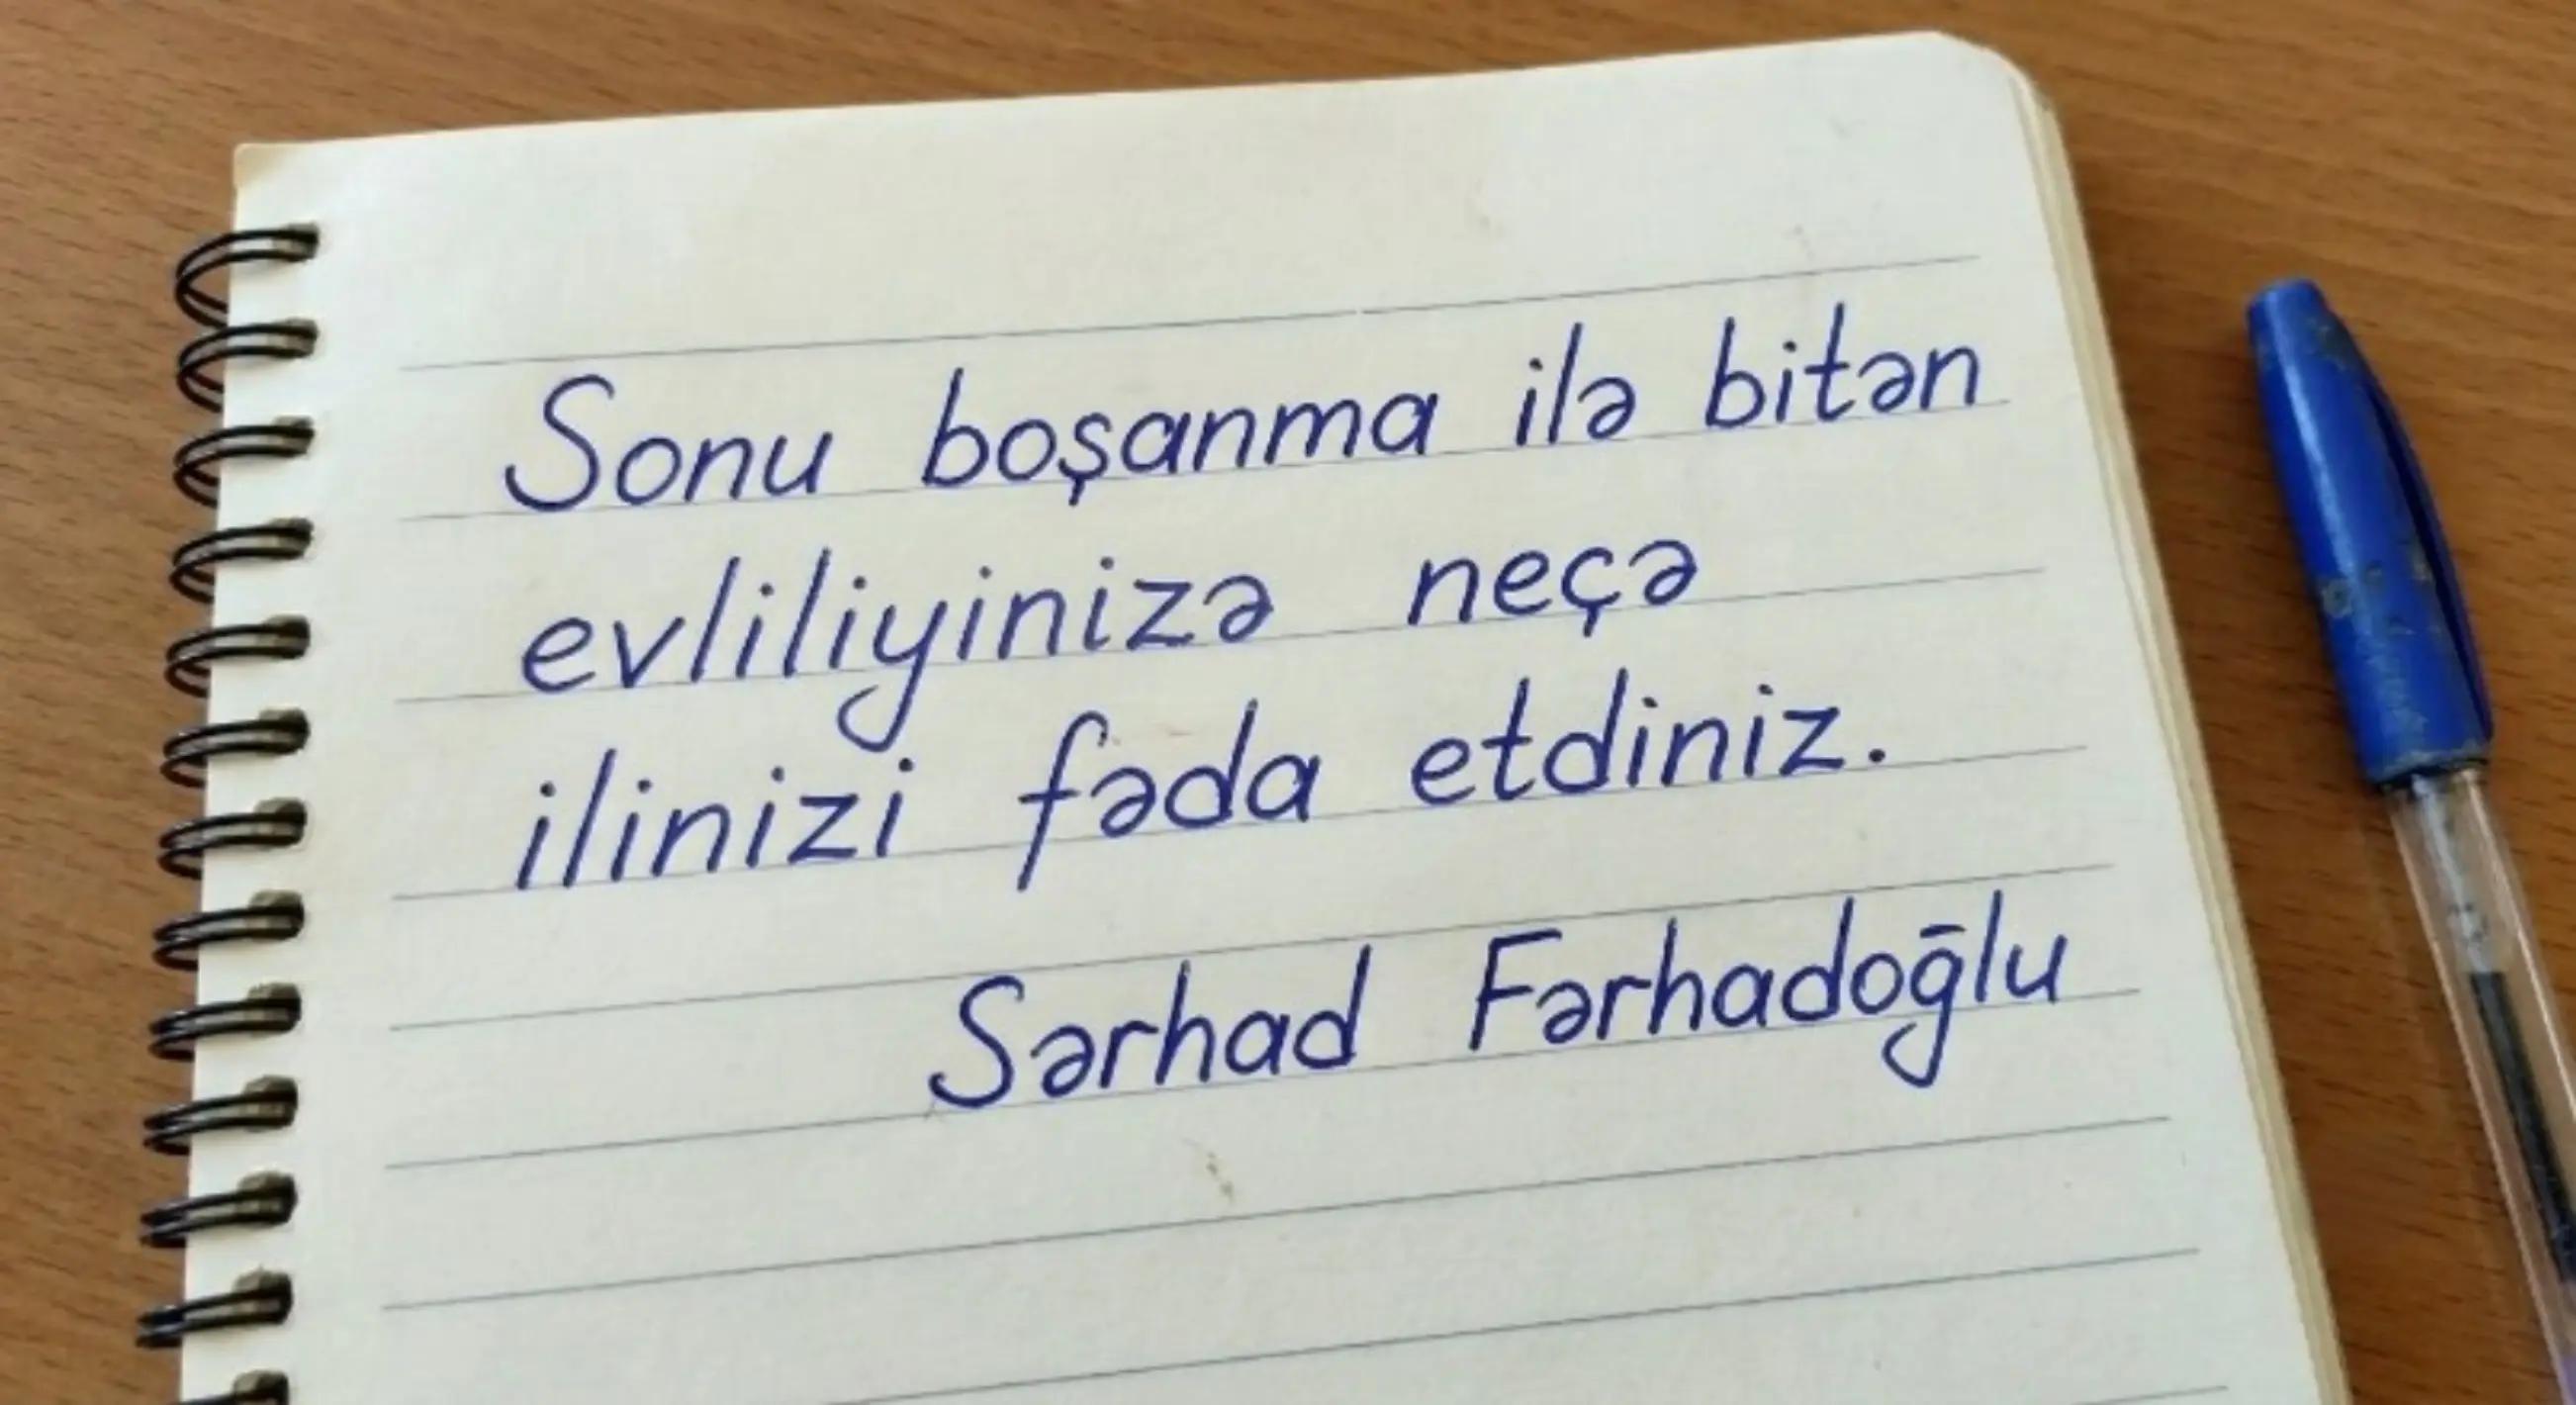 Sonu boşanma ilə bitən
evliliyinizə neçə
ilinizi fəda etdiniz.
Sərhad Fərhadoğlu